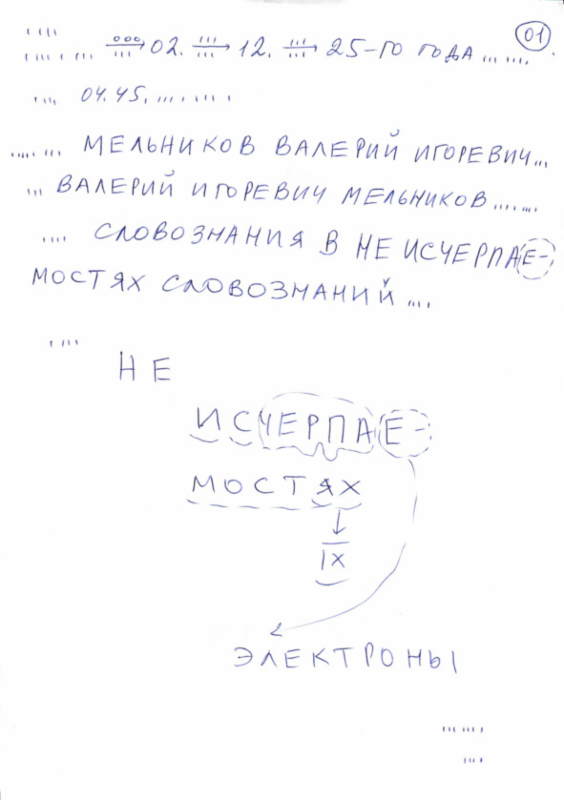 01
02. 12. 25-ГО ГОДА ... ....
... 04.45. ... . ... .
..... ... МЕЛЬНИКОВ ВАЛЕРИЙ ИГОРЕВИЧ...
... ВАЛЕРИЙ ИГОРЕВИЧ МЕЛЬНИКОВ ... . ...
.... СЛОВОЗНАНИЯ В НЕ ИСЧЕРПАЕ-
МОСТЯХ СЛОВОЗНАНИЙ ....
НЕ
ИСЧЕРПАЕ-
МОСТЯХ
IX
ЭЛЕКТРОНЫ